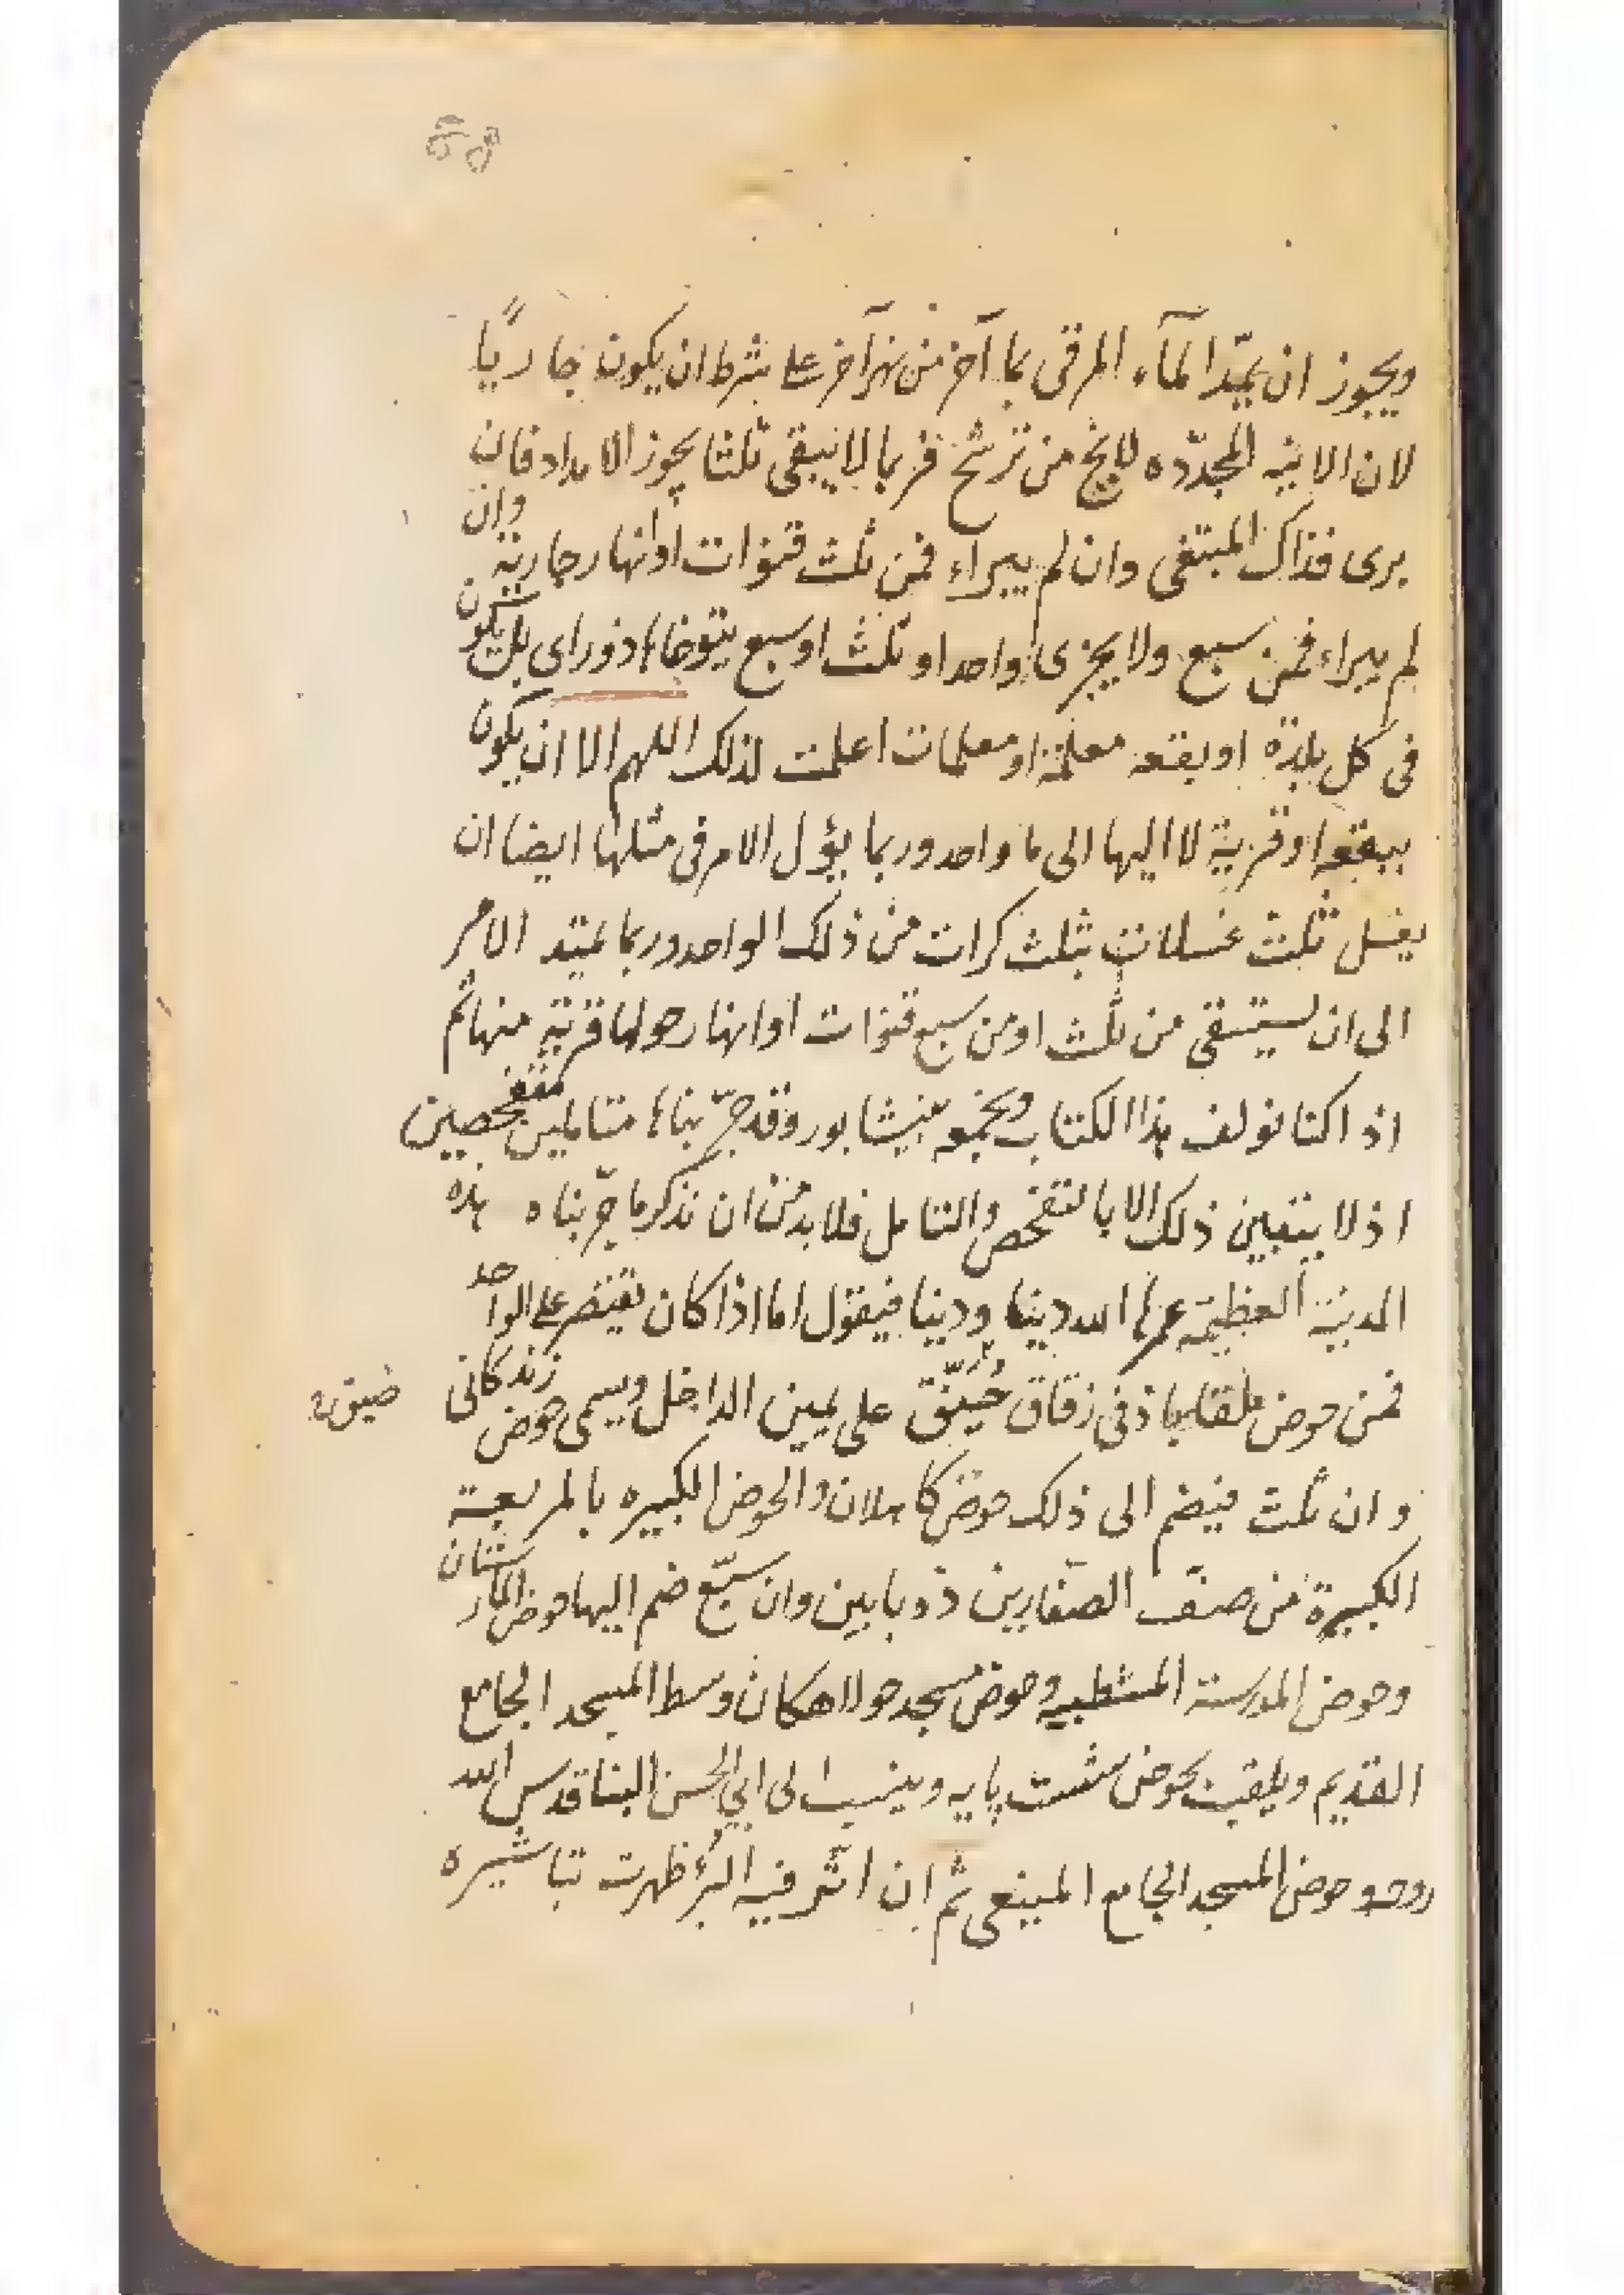 ويجوز ان يمدّ المآء المرقى بما آخر من نهر آخر على بشرط ان يكون جاريًا
لان الابنيه المجدّده لا يخ من ترشح فربما لا يبقى ثلثا يجوز الامداد فان
برى فذاك المبتغى وان لم يبراء فمن ثلث قنوات او انهار جارية وان
لم يبراء فمن سبع ولا يجزى واحد او ثلث او سبع يتوخاها ذو راى بل يكون
فى كل بلدة او بقعه معلمة او معلمات اعلمت لذلك اللهم الا ان يكون
ببقعه او قرية لا اليها الى ما واحد وربما يؤل الامر فى مثلها ايضا ان
يغسل ثلث غسلات بثلث كرات من ذلك الواحد وربما يمتد الامر
الى ان يستسقى من ثلث او من سبع قنوات او انهار حولها قرية منها ثم
اذ اكنا نولف هذا الكتاب ويخمعه بنيشابور وقد جرّبناها متاملين متفحصين
اذ لا يتبين ذلك الا بالتفحص والتامل فلا بد من ان نذكر ما جرّبناه هذه
المدينة العظيمة عمرها الله دينا ودينا فيقول اما اذا كان يقتصر على الواحد
فمن حوض ملقاباذ فى زقاق ضيّق على يمين الداخل ويسمى حوض زندكانى
ضيق
وان ثلث فيضم الى ذلك حوض كاهلان والحوض الكبيره بالمربعة
الكبيرة من صنف الصفارين ذو بابين وان سبّع ضم اليها حوض المارستان
وحوض المدرسة المشطبيه وحوض مسجد وسط المسجد الجامع
القديم ويلقب بحوض شست پايه وينسب الى ابي الحسن البنا قدس الله
روحه وحوض المسجد الجامع المنيعى ثم ان اثر فيه البرُ ظهرت تباشيره